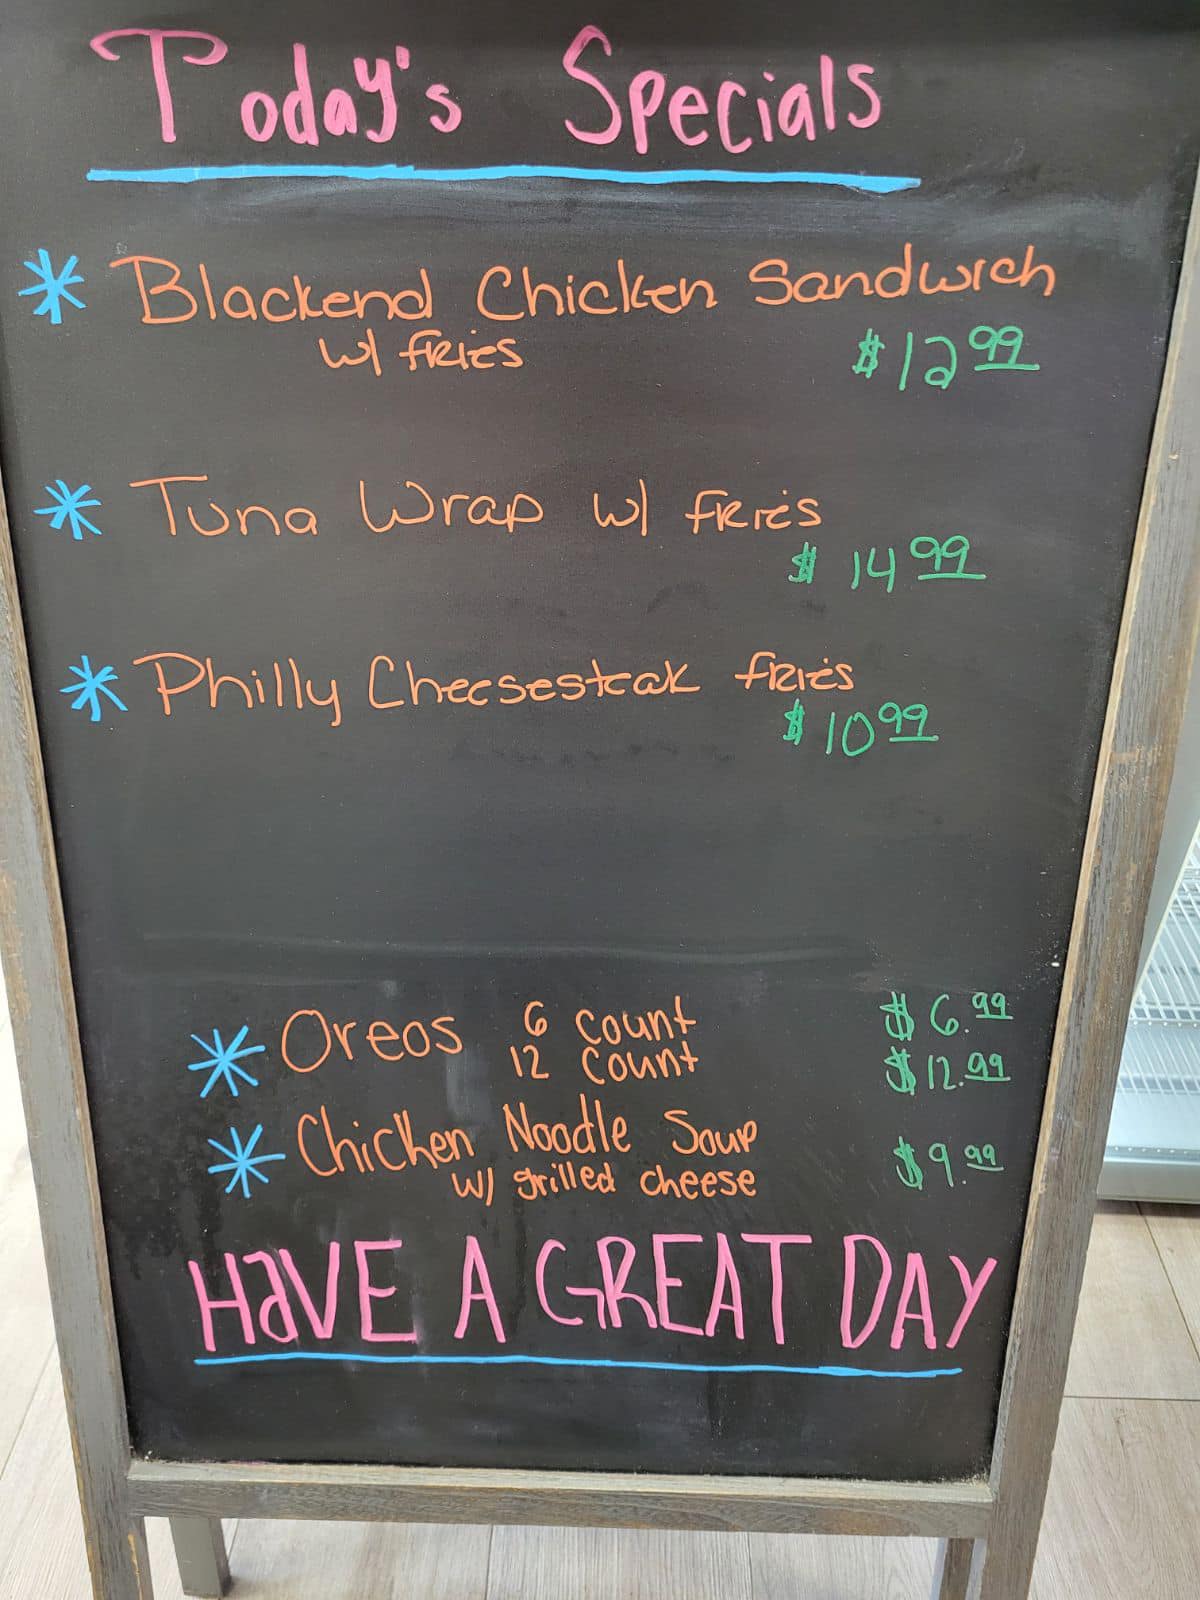 Today's Specials
* Blackend Chicken Sandwich
w/ fries
$12.99
* Tuna Wrap w/ fries
$14.99
* Philly Cheesesteak fries
$10.99
* Oreos 6 count $6.99
12 count $12.99
* Chicken Noodle Soup $9.99
w/ grilled cheese
HaVE A GREAT DAY